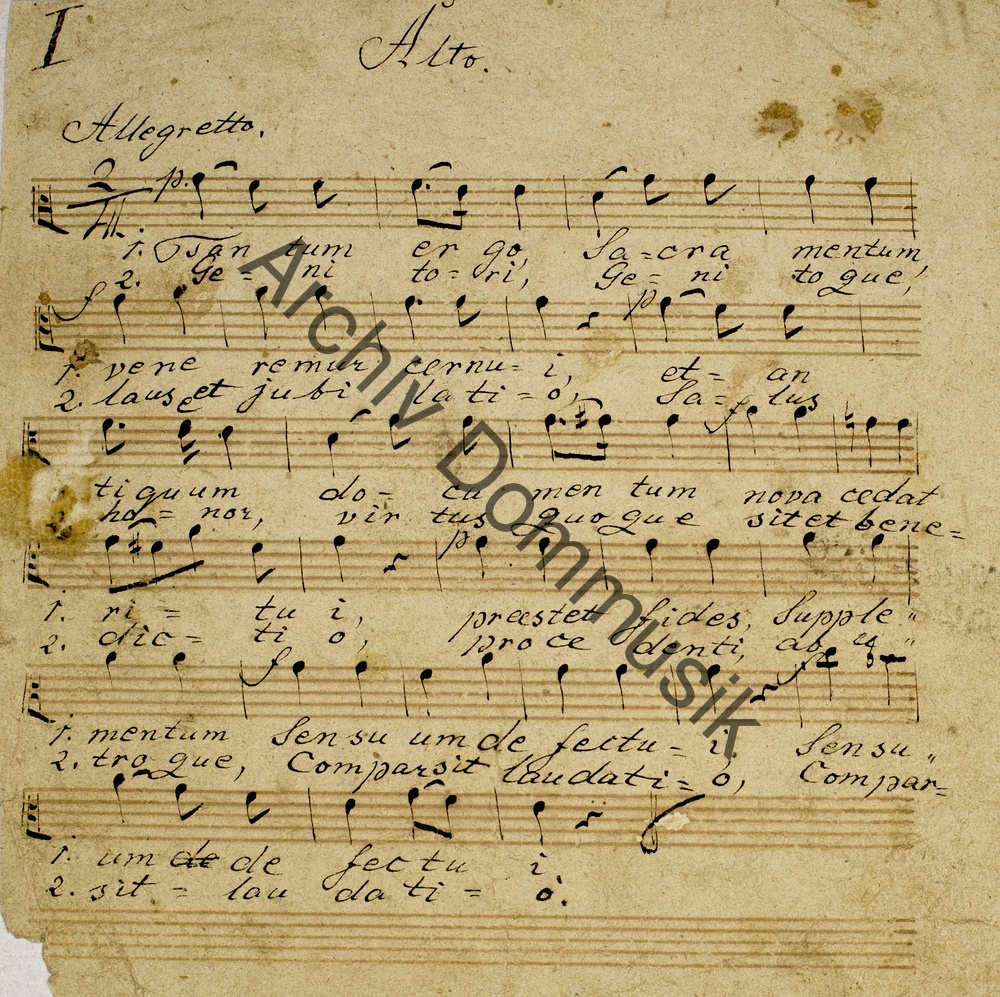 I
Alto.
Allegretto.
2/4 p.
1. Tan tum er go, Sa=cra mentum,
2. Ge= ni to=ri, Ge= ni to que,
f p
1. vene remur cernu= i, et= an
2. laus et jubi la ti= o, Sa= lus
f
tiquum do= cu men tum nova cedat
2. ho= nor, vir tus quoque sit et bene=
p
1. ri= tu i, præstet fides, Supple"
2. dic= ti o, pro ce denti, ab u"
f f
1. mentum Sen su um de fectu= i. Sen su"
2. tro que, Compar sit laudati= o, Compar=
1. um de de fec tu i
2. sit= lau da ti= o.
Archiv Dommusik